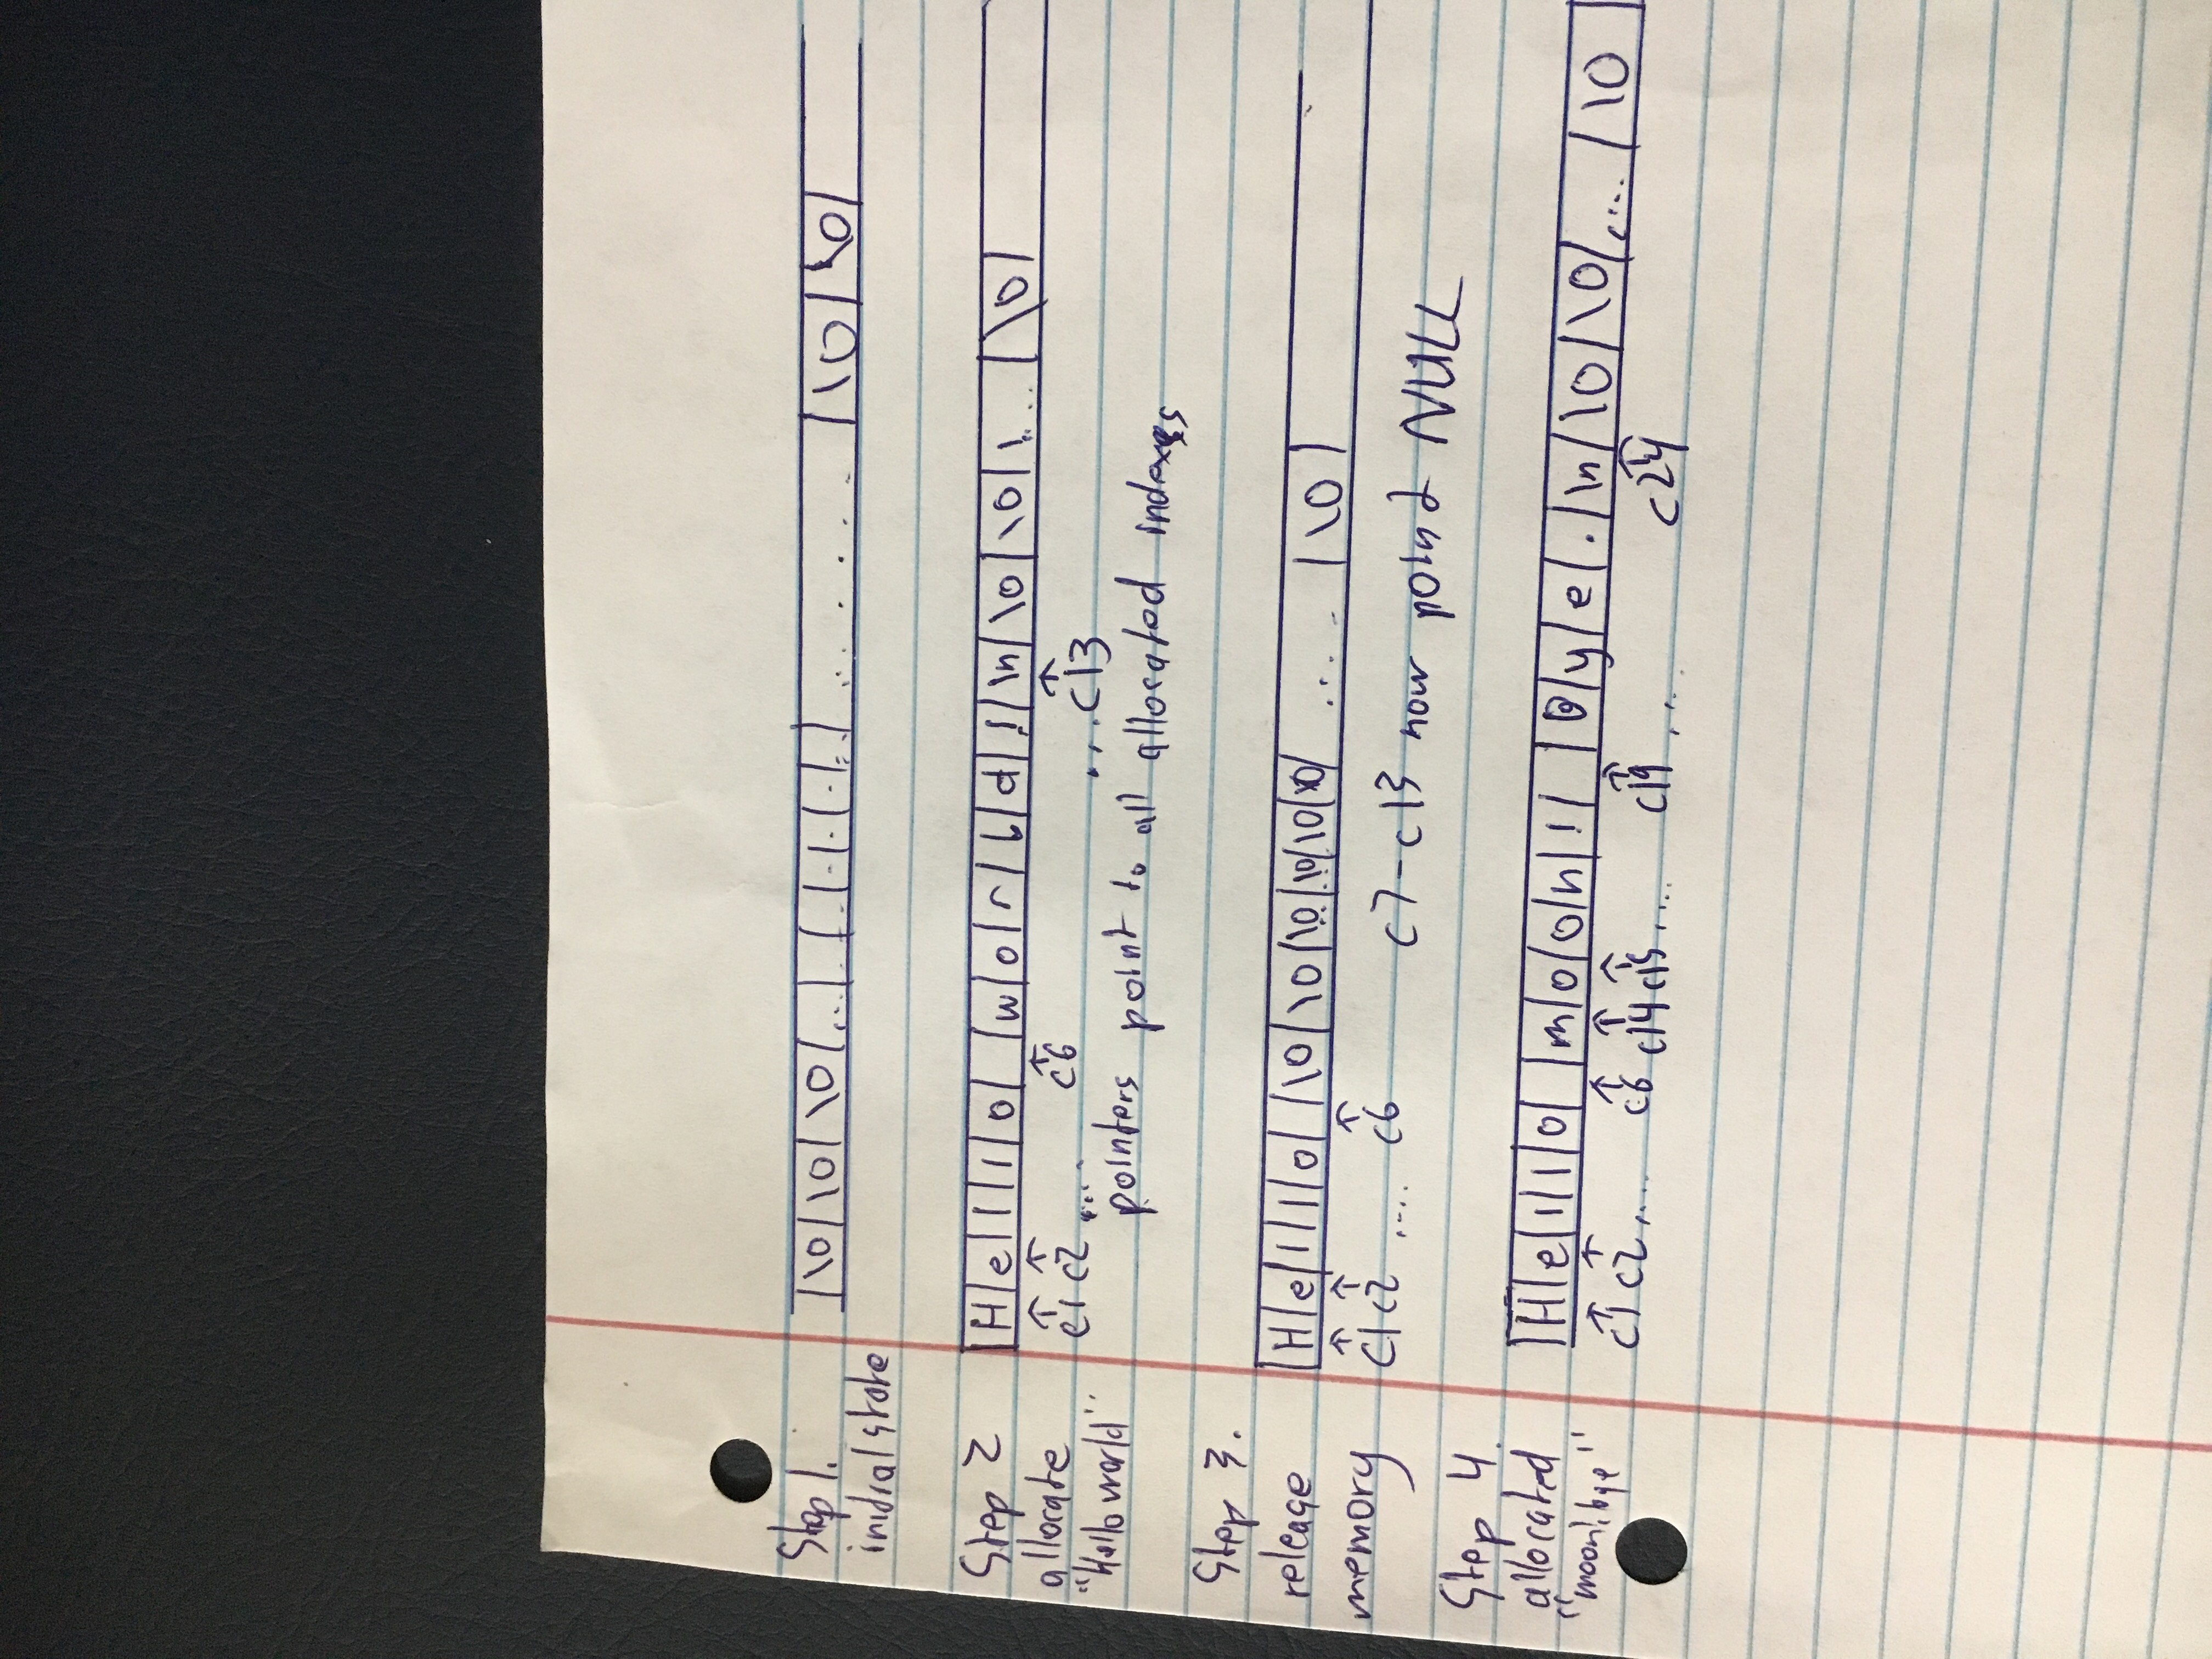 Step 1.
initial state
|\0|\0|\0|...| |.|.|.|.|.| . . . . . . |\0|\0|
Step 2
allocate
"Hello world"
|H|e|l|l|o| |w|o|r|l|d|!|\n|\0|\0|....|\0|
c1 c2 .... c6 ...c13
pointers point to all allocated indexes
Step 3.
release
memory
|H|e|l|l|o| |\0|\0|\0|\0|\0|\0| .... |\0|
c1 c2 .... c6 c7-c13 now point NULL
Step 4.
allocated
"moon!bye"
|H|e|l|l|o| |m|o|o|n|!| |B|y|e|.|\n|\0|\0|....|\0|
c1 c2.... c6 c14 c15.... c19 ... c24